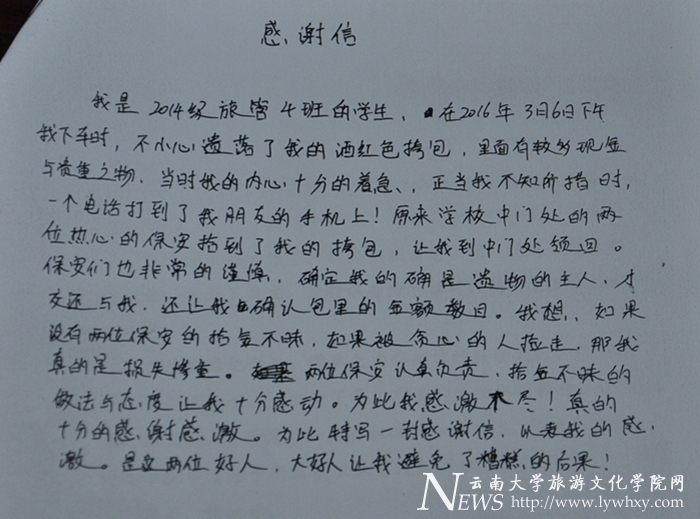 感谢信
我是2014级旅管4班的学生，在2016年3月6日下午
我下车时，不小心遗落了我的酒红色挎包，里面有较多现金
与贵重之物．当时我的内心十分的着急、，正当我不知所措时，
一个电话打到了我朋友的手机上！原来学校中门处的两
位热心的保安拾到了我的挎包，让我到中门处领回。
保安们也非常的谨慎，确定我的确是遗物的主人，才
交还与我，还让我确认包里的金额数目。我想，，如果
没有两位保安的拾金不昧，如果被贪心的人捡走，那我
真的是损失惨重。两位保安认真负责，拾金不昧的
做法与态度让我十分感动。为此我感激不尽！真的
十分的感谢感激。为此特写一封感谢信，以表我的感
激。是这两位好人，大好人让我避免了糟糕的后果！
云南大学旅游文化学院网
NEWS http://www.lywhxy.com